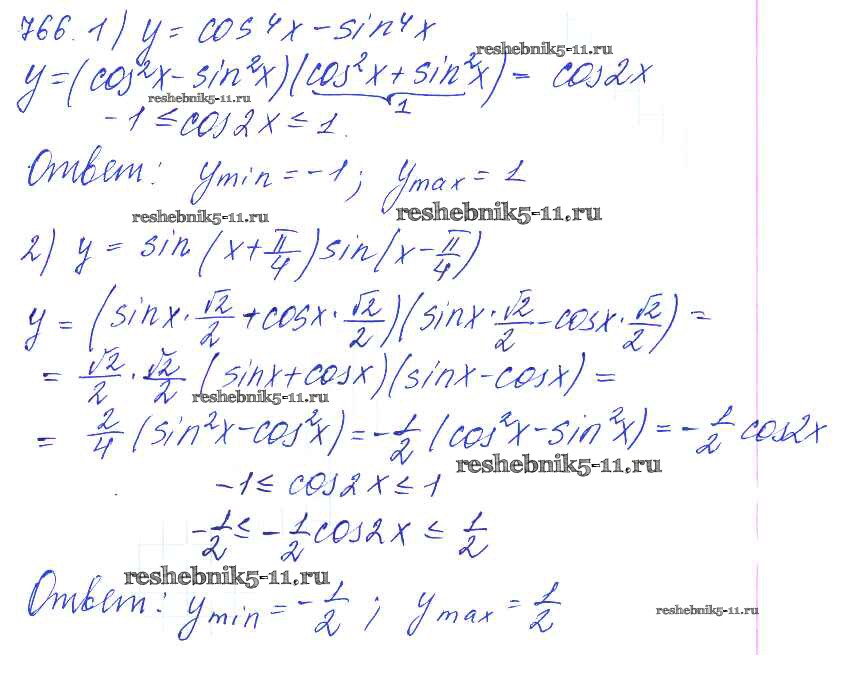 766. 1) y = cos⁴x - sin⁴x
reshebnik5-11.ru
y = (cos²x - sin²x)(cos²x + sin²x) = cos2x
reshebnik5-11.ru
1
-1 ≤ cos2x ≤ 1.
Ответ: y min = -1; y max = 1
reshebnik5-11.ru reshebnik5-11.ru
2) y = sin(x + π/4) sin(x - π/4)
y = (sinx · √2/2 + cosx · √2/2)(sinx · √2/2 - cosx · √2/2) =
= √2/2 · √2/2 (sinx + cosx)(sinx - cosx) =
reshebnik5-11.ru
= 2/4 (sin²x - cos²x) = -1/2 (cos²x - sin²x) = -1/2 cos2x
reshebnik5-11.ru
-1 ≤ cos2x ≤ 1
-1/2 ≤ -1/2 cos2x ≤ 1/2
reshebnik5-11.ru
Ответ: y min = -1/2; y max = 1/2
reshebnik5-11.ru